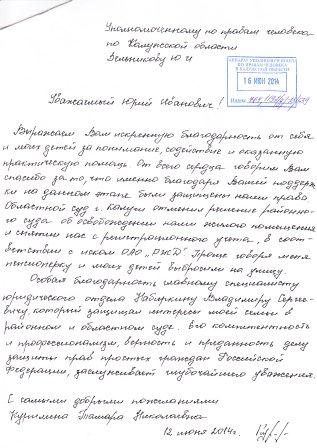 Уполномоченному по правам человека
по Калужской области
Зельникову Ю И
АППАРАТ УПОЛНОМОЧЕННОГО
ПО ПРАВАМ ЧЕЛОВЕКА
В КАЛУЖСКОЙ ОБЛАСТИ
16 ИЮН 2014
Уважаемый Юрий Иванович!
Выражаем Вам искреннюю благодарность от себя
и моих детей за понимание, содействие и оказанную
практическую помощь. От всего сердца говорим Вам
спасибо за то, что именно благодаря Вашей поддерж
ки на данном этапе были защищены наши права
Областной суд г. Калуги отменил решение районно-
го суда об освобождении нами жилого помещения
и снятии нас с регистрационного учета, в соот-
ветствии с иском ОАО „РЖД" Проще говоря меня
пенсионерку и моих детей выбросили на улицу.
Особая благодарность главному специалисту
юридического отдела Набиркину Владимиру Серге-
вичу, который защищал интересы моей семьи в
районном и областном суде. Его компитентность
и профессионализм, верность и преданность делу
защиты прав простых граждан Российской
Федерации, заслуживает глубочайшего уважения.
С самыми добрыми пожеланиями
Курилина Тамара Николаевна
12 июня 2014г.